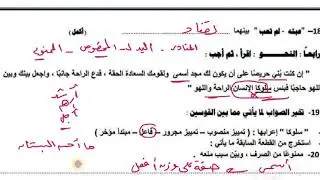 18- "ميتة - لم تعب" بينهما تضاد (أكمل)
رابعًا: النحو: اقرأ، ثم أجب:
المنادى - البدل - المخصوص - المجني
" إن كنت بني حريصًا على أن يكون لك مجد أسمى ولقومك السعادة الحقة ، فدع الراحة جانبًا ، واجعل بينك وبين
اللهو حاجبًا فبئس سلوكا الإنسان الراحة واللهو "
19- تخير الصواب لما يأتي مما بين القوسين :
- " سلوكا " إعرابها : ( تمييز منصوب – تمييز مجرور – فاعل – مبتدأ مؤخر )
- استخرج من القطعة السابقة ما يأتي :
20- ممنوعًا من الصرف ، وبين سبب منعه
أسمى ← صفة على وزن أفعل